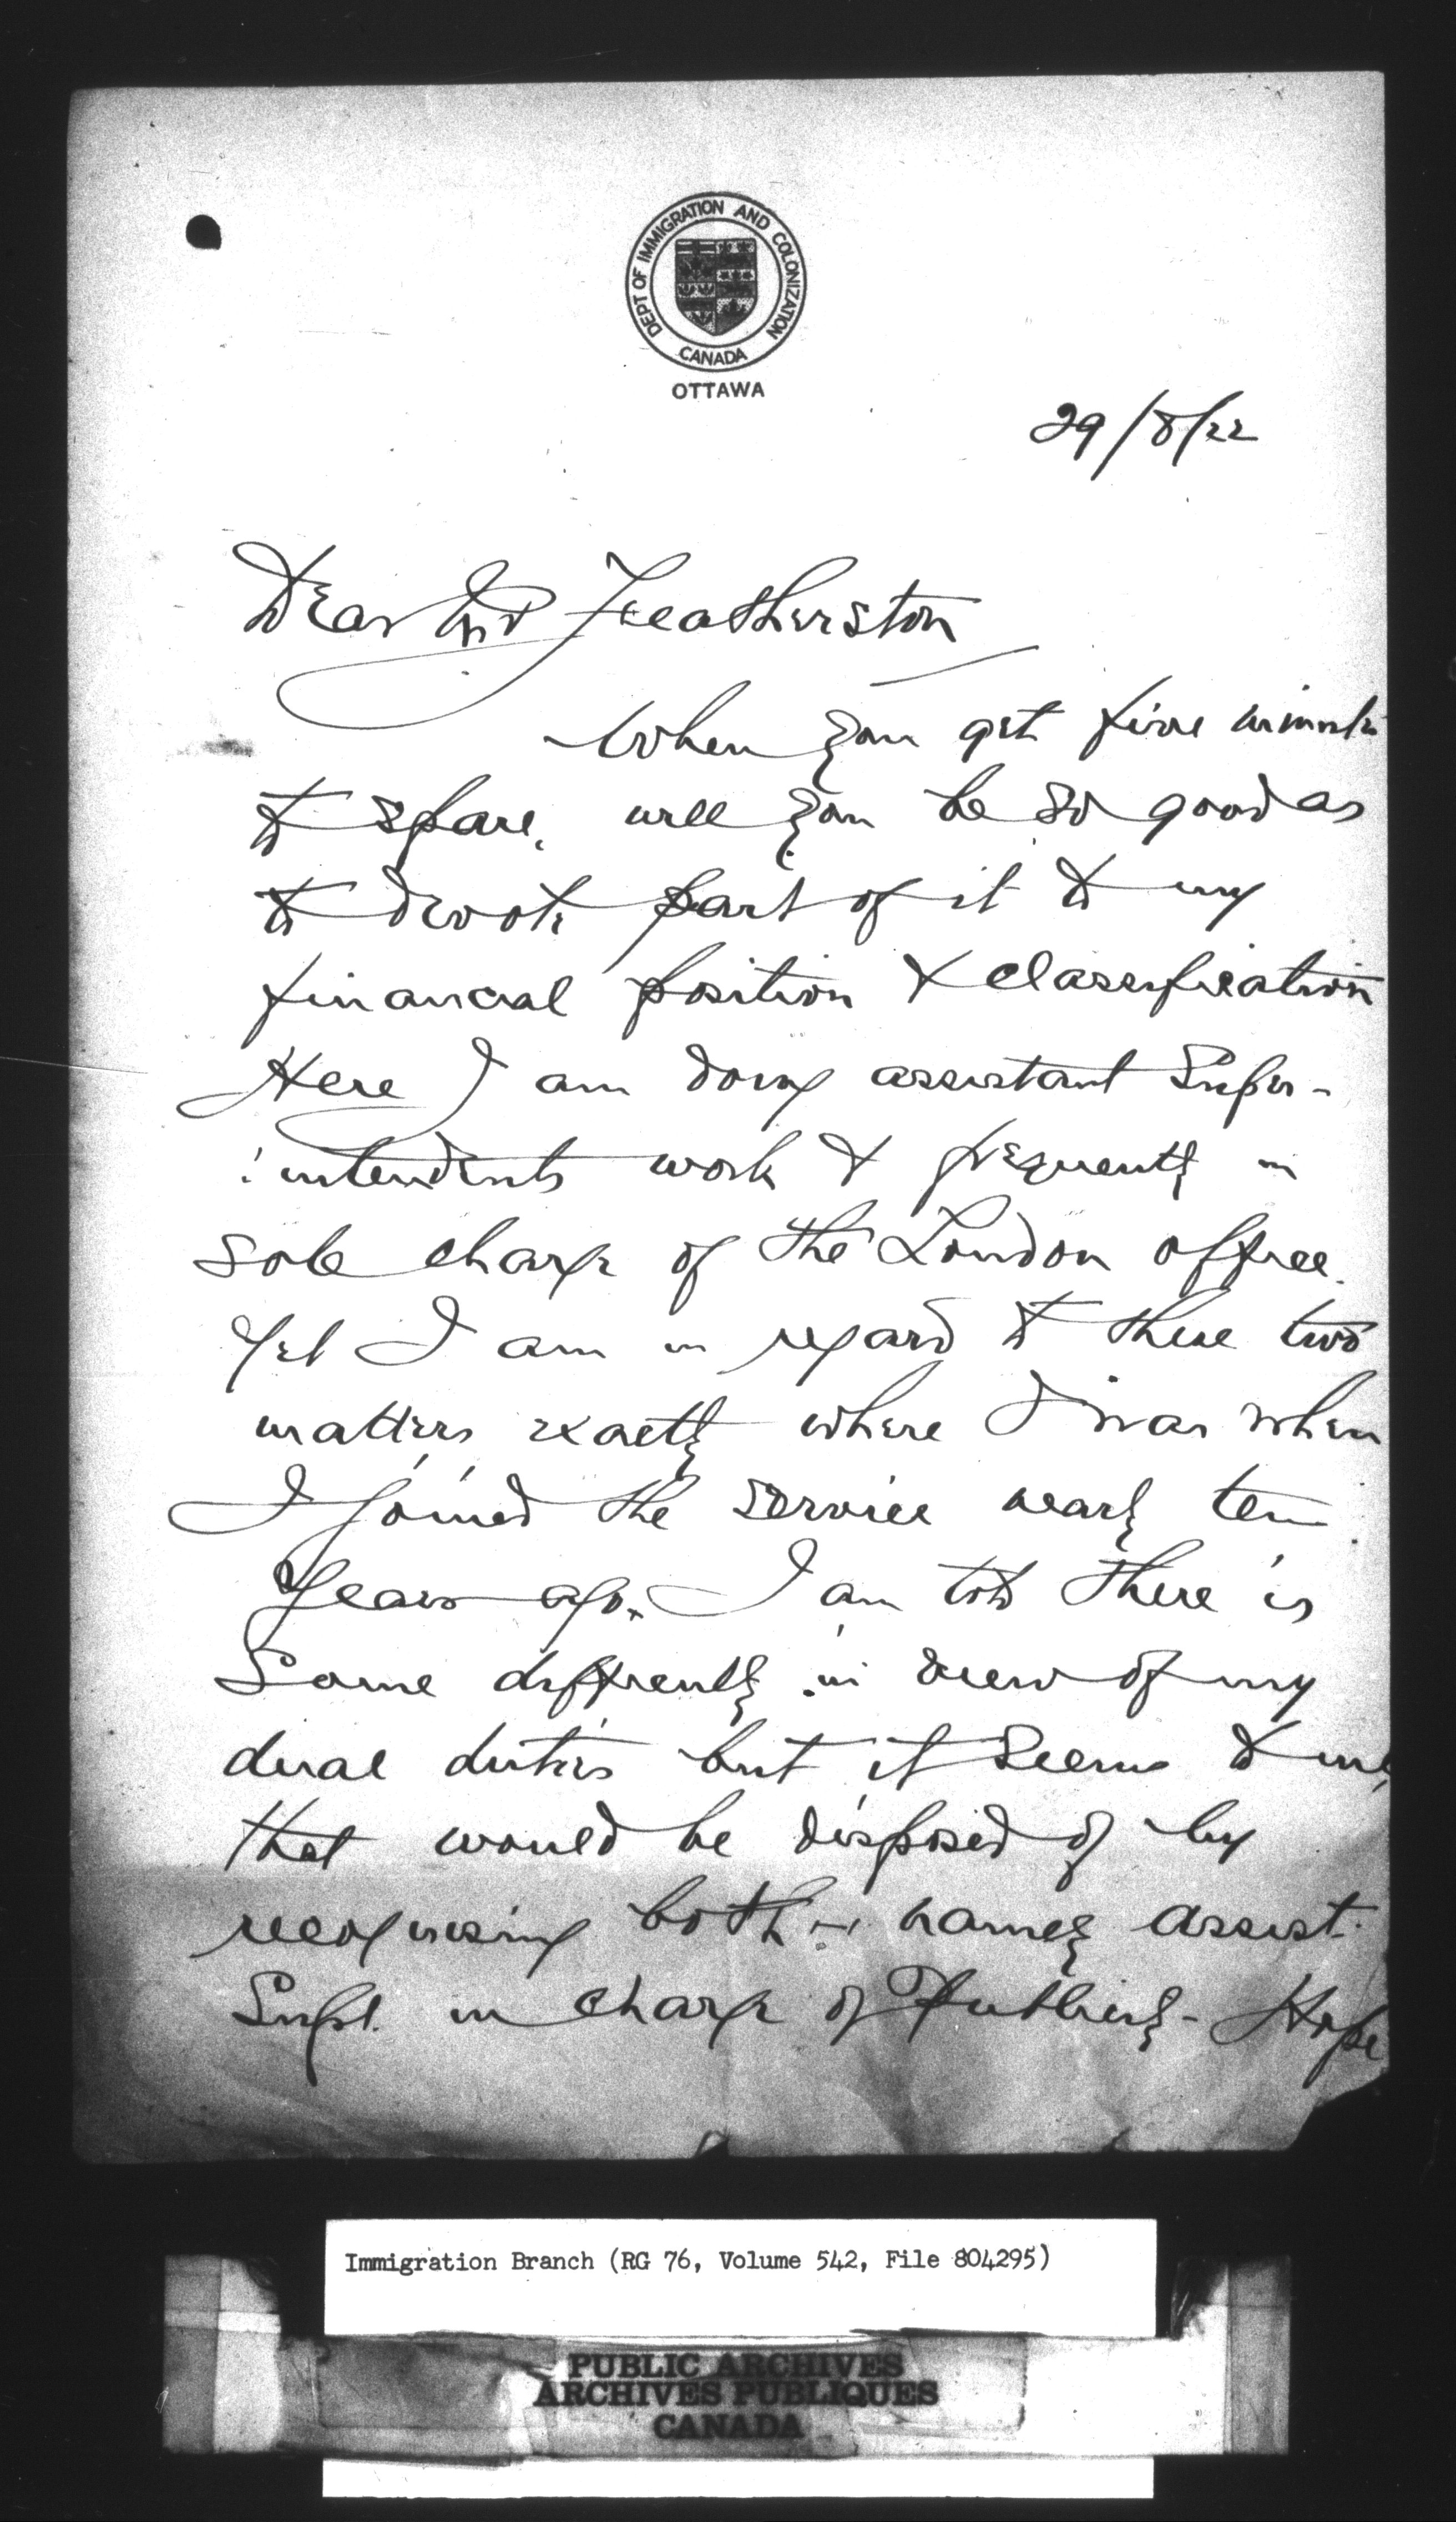 DEPT OF IMMIGRATION AND COLONIZATION
CANADA
OTTAWA
29/8/22
Dear Mr Featherston
When you get five minutes
to spare, will you be so good as
to devote part of it to my
financial position & classification
Here I am doing assistant Super-
intendents work & frequently in
sole charge of the London office.
Yet I am in regard to these two
matters, exactly where I was when
I joined the service nearly ten
Years ago. I am told there is
Some difficulty in view of my
dual duties but it seems to me,
that would be disposed of by
recognising both — namely assist.
Supt. in charge of Publicity - Hope
Immigration Branch (RG 76, Volume 542, File 804295)
PUBLIC ARCHIVES
ARCHIVES PUBLIQUES
CANADA